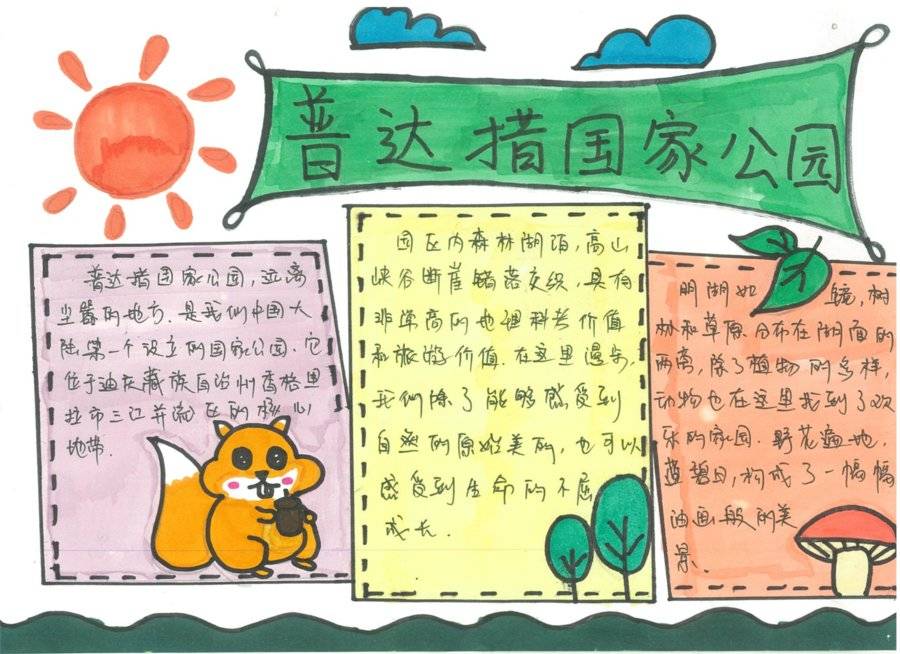 普达措国家公园
普达措国家公园,远离
尘嚣的地方.是我们中国大
陆第一个设立的国家公园.它
位于迪庆藏族自治州香格里
拉市三江并流区的核心
地带.
园区内森林湖泊,高山
峡谷断崖错落交织,具有
非常高的地理科考价值
和旅游价值.在这里漫步,
我们除了能够感受到
自然的原始美的,也可以
感受到生命的不屈
成长.
明湖如 镜,树
林和草原.分布在湖面的
两离,除了植物的多样,
动物也在这里找到了欢
乐的家园.野花遍地,
蓝碧日,构成了一幅幅
油画般的美
景.